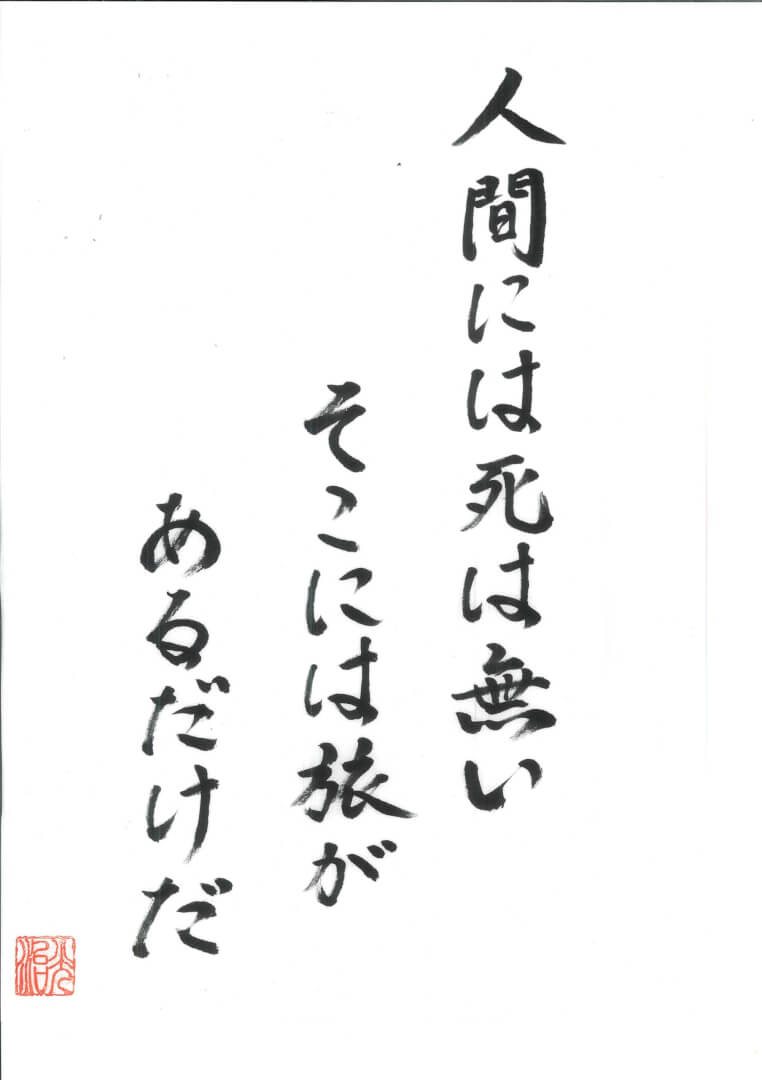 人間には死は無い
そこには旅が
あるだけだ